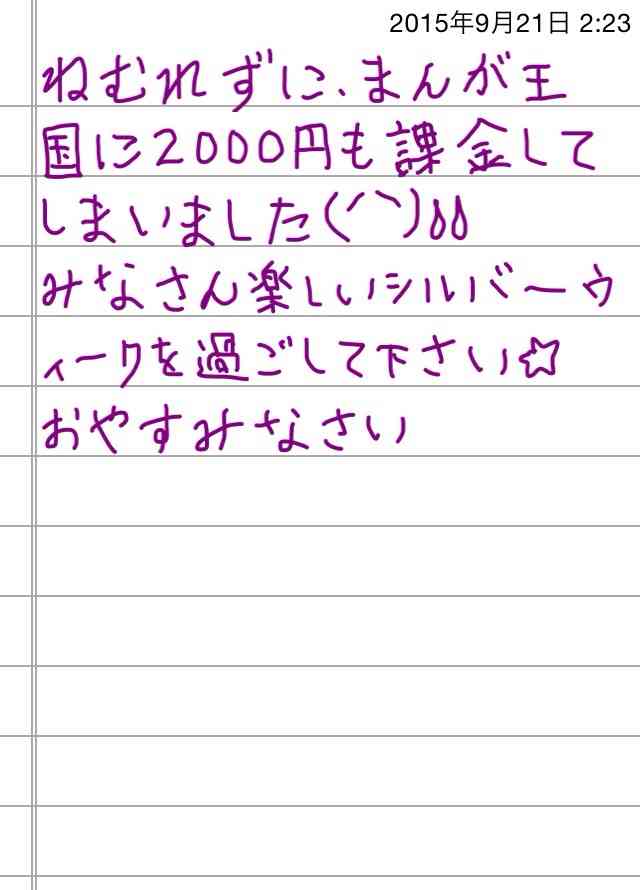 2015年9月21日 2:23
ねむれずに、まんが王
国に2000円も課金して
しまいました(´｀)δδ
みなさん楽しいシルバーウ
ィークを過ごして下さい☆
おやすみなさい